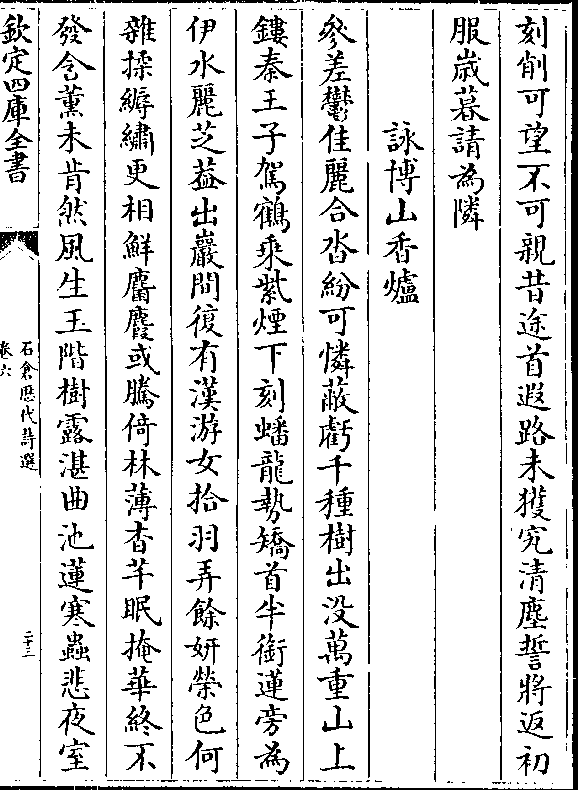 刻削可望不可親昔途首遐路未獲究清塵誓將返初
服歲暮請為隣
詠博山香爐
參差鬱佳麗合沓紛可憐蔽虧千種樹出没萬重山上
鏤秦王子駕鶴乘紫煙下刻蟠龍勢矯首半銜蓮旁為
伊水麗芝葢出巖間復有漢游女拾羽弄餘妍榮色何
雜揉縟繡更相鮮麏麚或騰倚林薄杳芊眠掩華終不
發含薰未肯然風生玉階樹露湛曲池蓮寒蟲悲夜室
欽定四庫全書
石倉歴代詩選
卷六
二十三